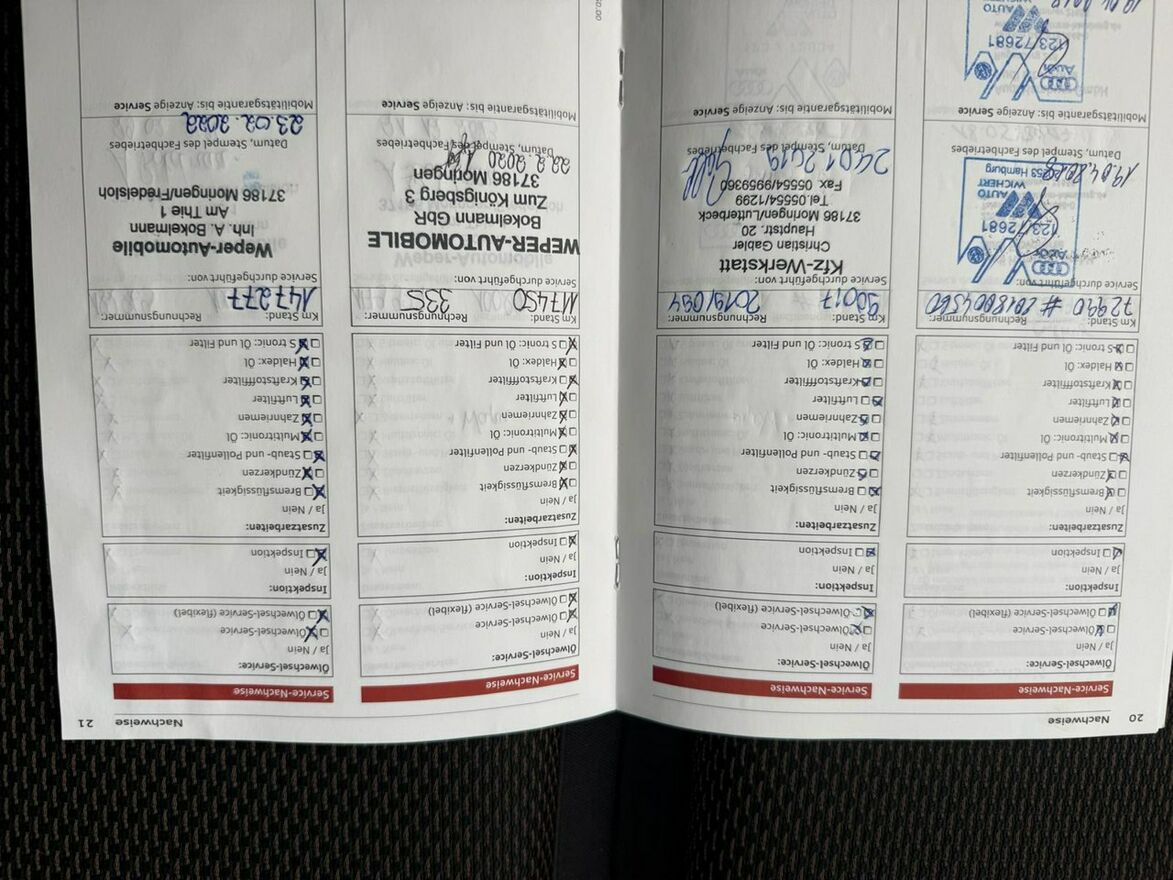 20 Nachweise
Service-Nachweise
Ölwechsel-Service:
Ja / Nein
Ölwechsel-Service
Ölwechsel-Service (flexibel)
Inspektion:
Ja / Nein
Inspektion
Zusatzarbeiten:
Ja / Nein
Bremsflüssigkeit
Zündkerzen
Staub- und Pollenfilter
Multitronic: Öl
Zahnriemen
Luftfilter
Kraftstofffilter
Haldex: Öl
S tronic: Öl und Filter
Km Stand: Rechnungsnummer:
72990 #
Service durchgeführt von:
Audi
123/72681
AUTO
WICHERT
Hamburg
Datum, Stempel des Fachbetriebes
Mobilitätsgarantie bis: Anzeige Service
Audi
123/72681
AUTO
Service-Nachweise
Ölwechsel-Service:
Ja / Nein
Ölwechsel-Service
Ölwechsel-Service (flexibel)
Inspektion:
Ja / Nein
Inspektion
Zusatzarbeiten:
Ja / Nein
Bremsflüssigkeit
Zündkerzen
Staub- und Pollenfilter
Multitronic: Öl
Zahnriemen
Luftfilter
Kraftstofffilter
Haldex: Öl
S tronic: Öl und Filter
Km Stand: Rechnungsnummer:
90017 2019/094
Service durchgeführt von:
Kfz-Werkstatt
Christian Gabler
Hauptstr. 20
37186 Moringen/Lutterbeck
Tel.05554/1299
Fax 05554/9959360
24.01.2019
Datum, Stempel des Fachbetriebes
Mobilitätsgarantie bis: Anzeige Service
Nachweise 21
Service-Nachweise
Ölwechsel-Service:
Ja / Nein
Ölwechsel-Service
Ölwechsel-Service (flexibel)
Inspektion:
Ja / Nein
Inspektion
Zusatzarbeiten:
Ja / Nein
Bremsflüssigkeit
Zündkerzen
Staub- und Pollenfilter
Multitronic: Öl
Zahnriemen
Luftfilter
Kraftstofffilter
Haldex: Öl
S tronic: Öl und Filter
Km Stand: Rechnungsnummer:
117450 335
Service durchgeführt von:
WEPER-AUTOMOBILE
Bokelmann GbR
Zum Königsberg 3
37186 Moringen
22.2.2020
Datum, Stempel des Fachbetriebes
Mobilitätsgarantie bis: Anzeige Service
Service-Nachweise
Ölwechsel-Service:
Ja / Nein
Ölwechsel-Service
Ölwechsel-Service (flexibel)
Inspektion:
Ja / Nein
Inspektion
Zusatzarbeiten:
Ja / Nein
Bremsflüssigkeit
Zündkerzen
Staub- und Pollenfilter
Multitronic: Öl
Zahnriemen
Luftfilter
Kraftstofffilter
Haldex: Öl
S tronic: Öl und Filter
Km Stand: Rechnungsnummer:
147277
Service durchgeführt von:
Weper-Automobile
Inh. A. Bokelmann
Am Thie 1
37186 Moringen/Fredelsloh
Datum, Stempel des Fachbetriebes
23.02.2022
Mobilitätsgarantie bis: Anzeige Service